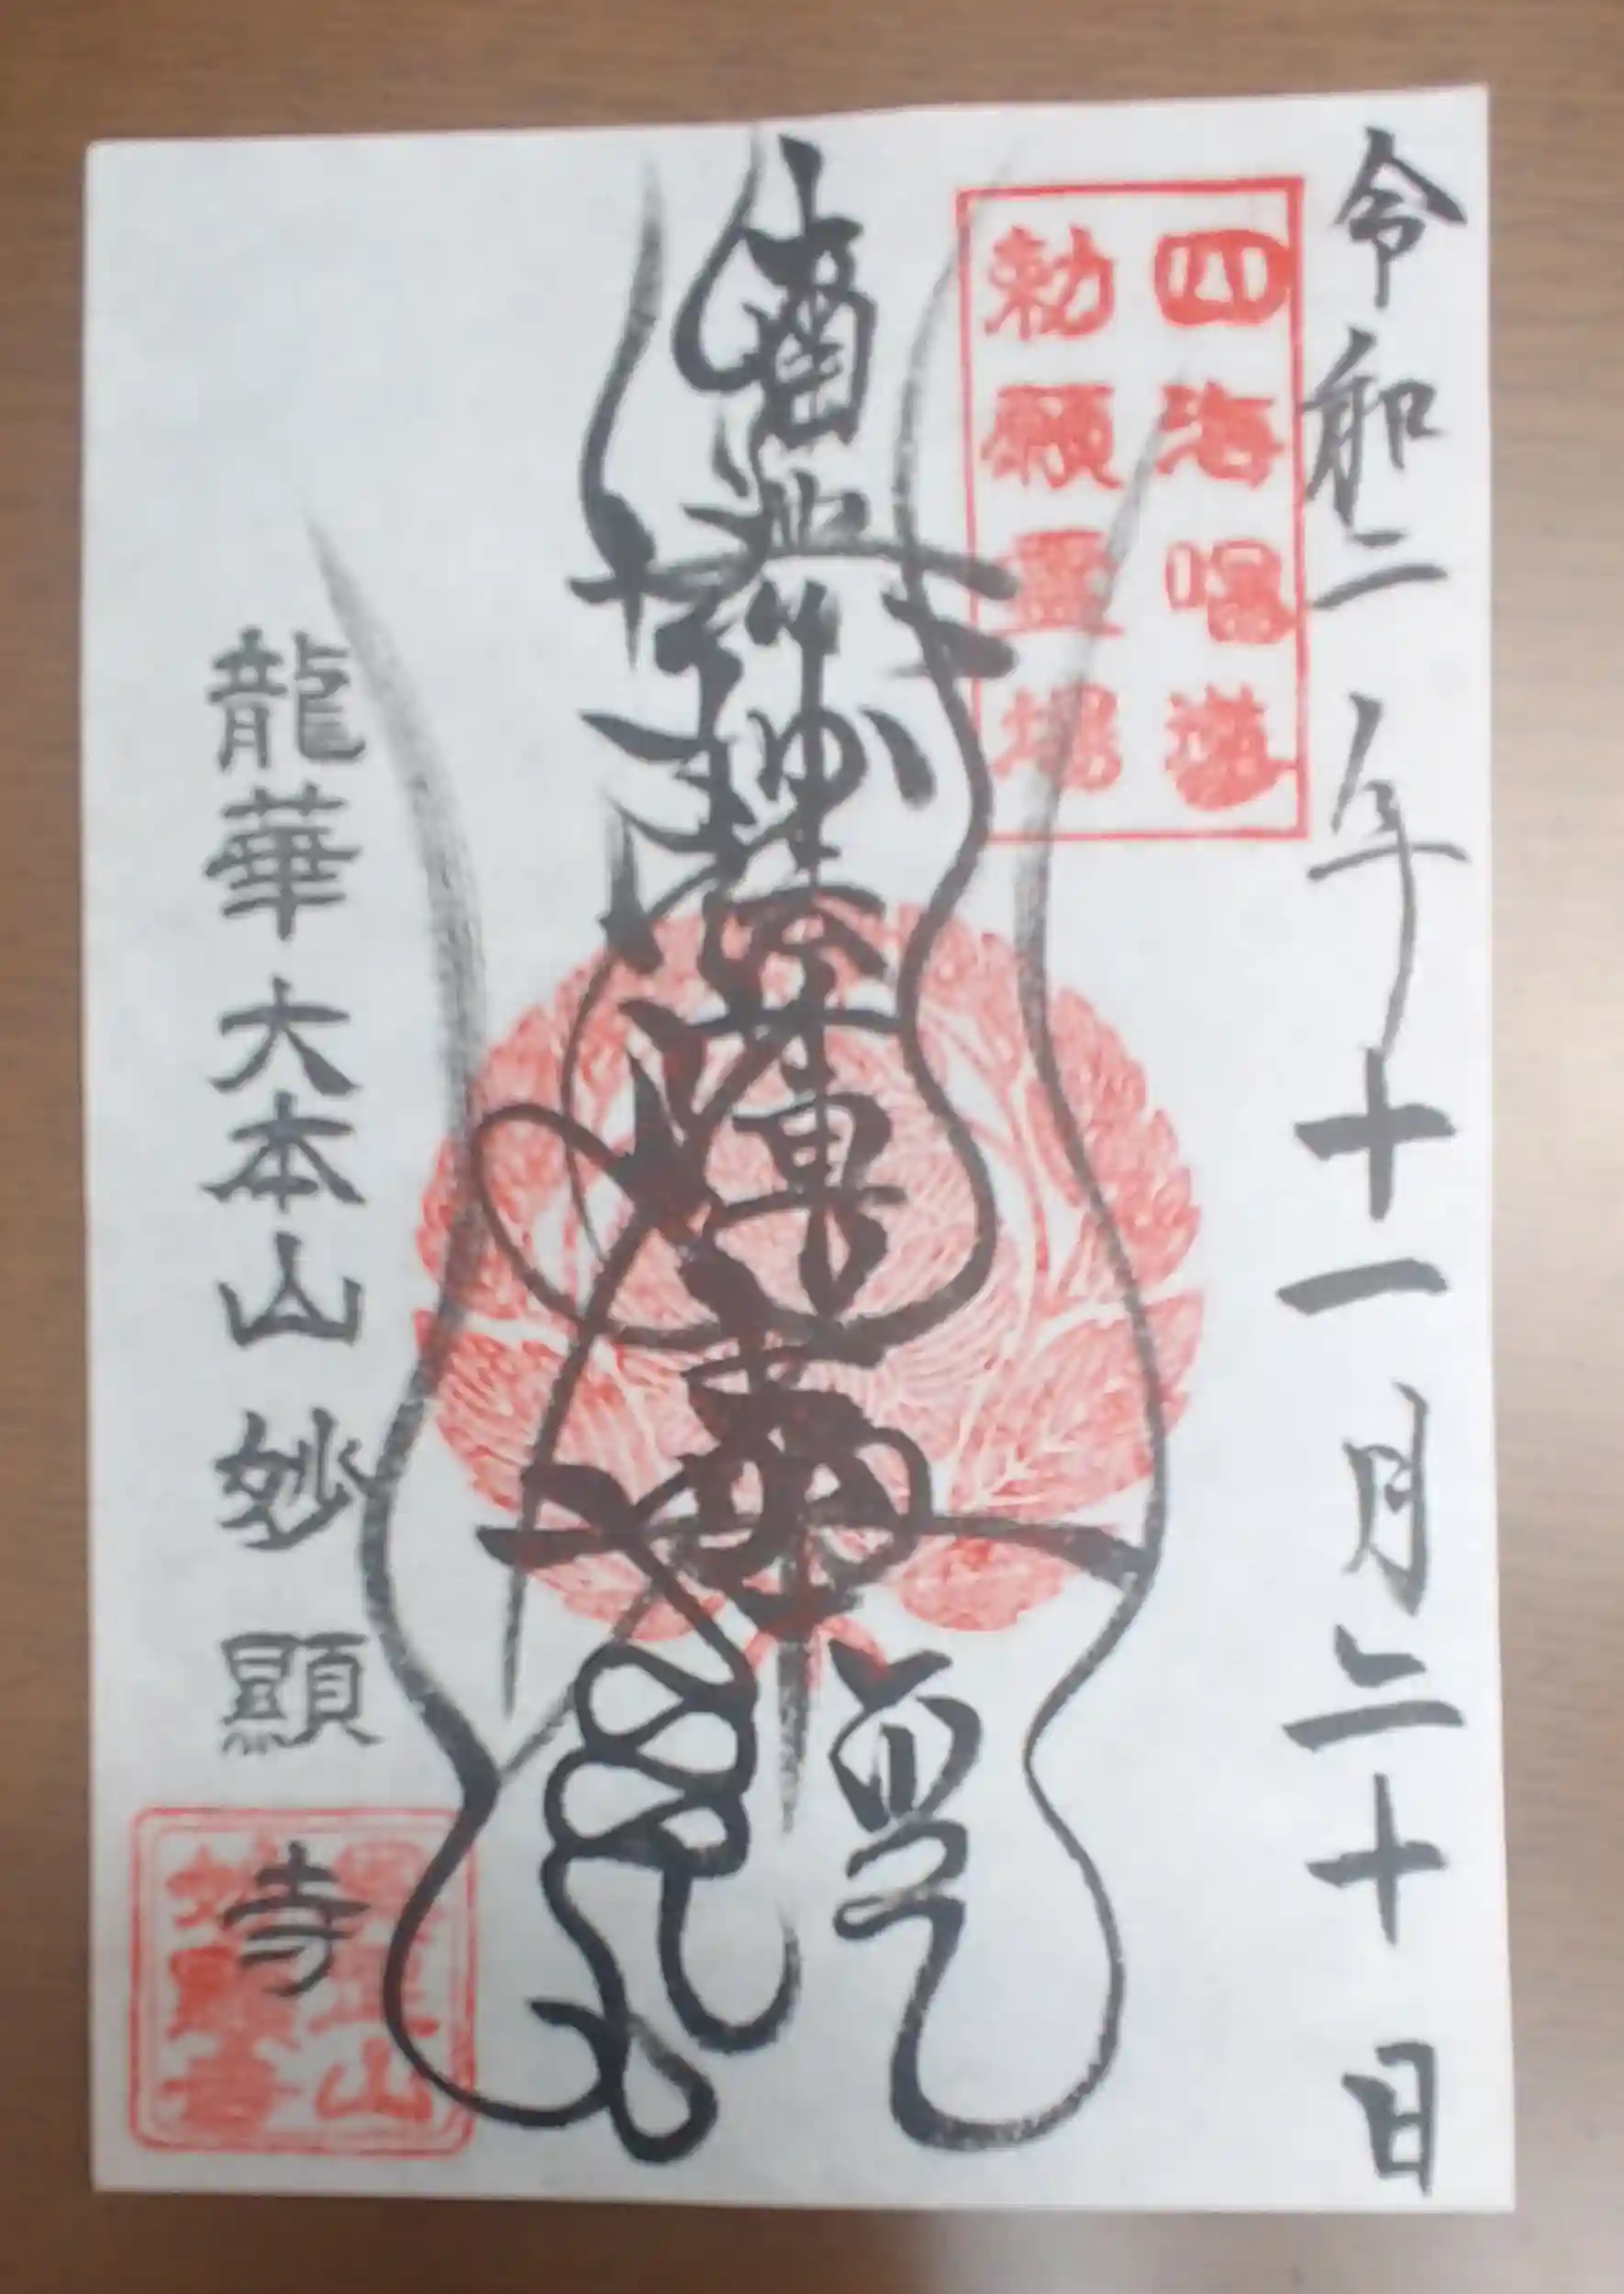 令和二年十一月二十日
四海唱導
勅願霊場
南無妙法蓮華經
龍華 大本山 妙顯寺